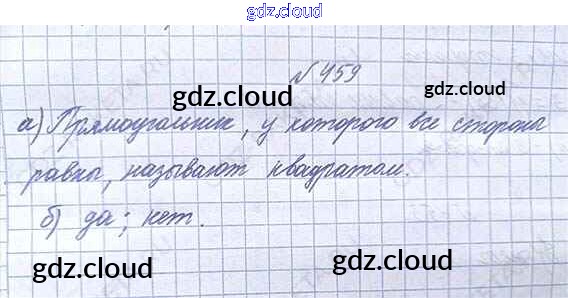 gdz.cloud
№459
gdz.cloud
gdz.cloud
а) Прямоугольник, у которого все стороны
равны, называют квадратом.
gdz.cloud
б) да; нет.
gdz.cloud
gdz.cloud